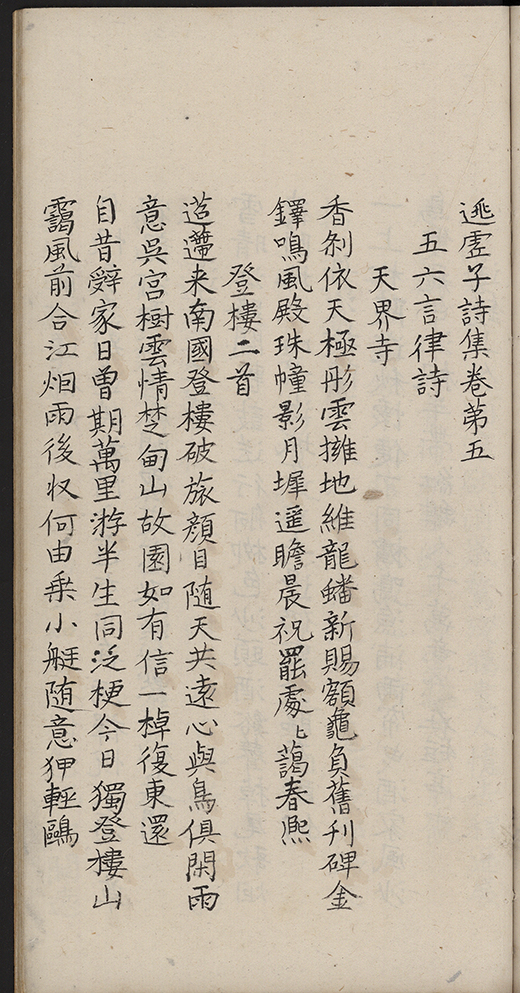 逃虛子詩集卷第五
五六言律詩
天界寺
香刹依天極彤雲擁地維龍蟠新賜額龜負舊刋碑金
鐸鳴風殿珠幢影月墀遥瞻晨祝罷處〻藹春熈
登樓二首
迢遰来南國登樓破旅顔目随天共遠心與鳥俱閑雨
意吳宮樹雲情楚甸山故園如有信一棹復東還
自昔辭家日曾期萬里游半生同泛梗今日獨登樓山
靄風前合江烟雨後収何由乗小艇随意狎輕鷗